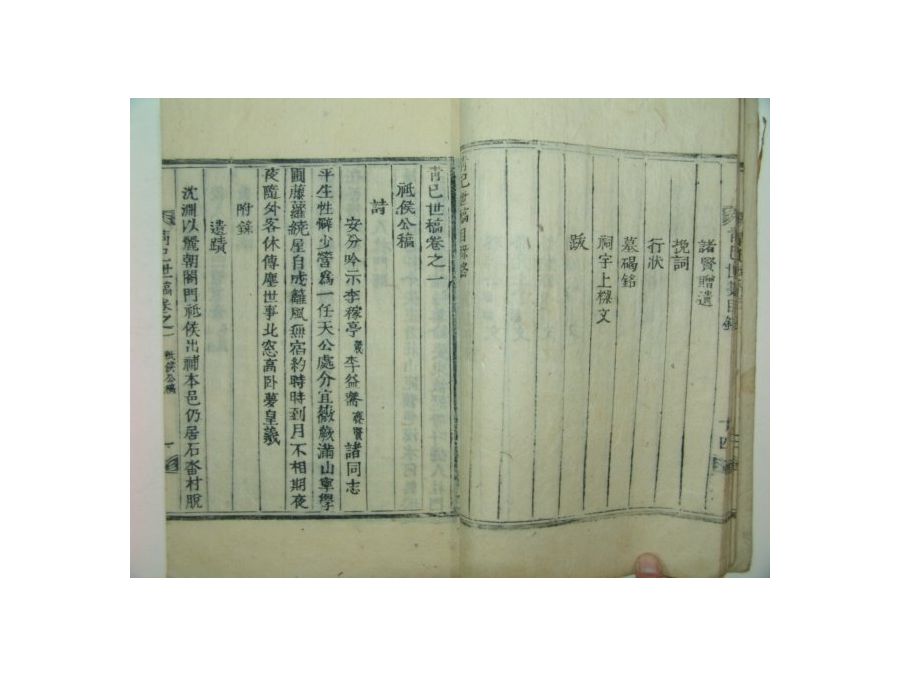 諸賢贈遺
挽詞
行狀
墓碣銘
祠宇上樑文
跋
靑己世稿目錄終
靑己世稿卷之一
祗侯公稿
詩
安分吟示李稼亭穀李益齋齊賢諸同志
平生性癖少營爲一任天公處分宜薇蕨滿山寧學
圃藤蘿繞屋自成籬風無宿約時時到月不相期夜
夜隨外客休傳塵世事北窓高臥夢皇羲
附錄
遺蹟
沈淵以麗朝閣門祗侯出補本邑仍居石沓村脫
靑己世稿卷之一 祗侯公稿 一